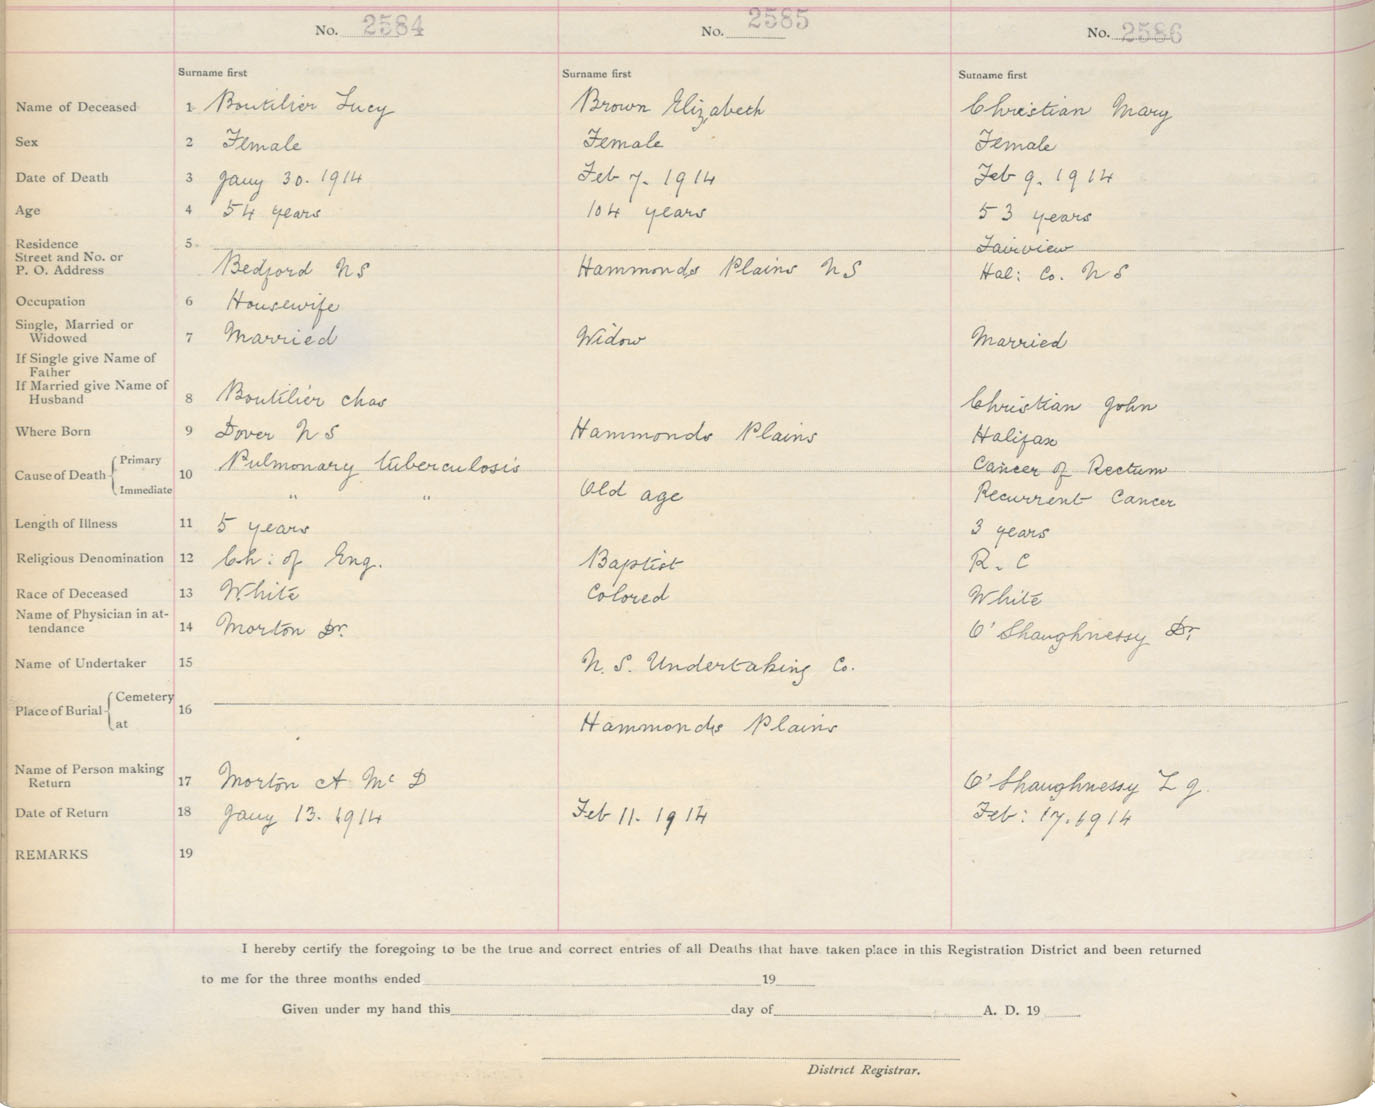 No. 2584 No. 2585 No. 2586
Surname first Surname first Surname first
Name of Deceased 1 Boutilier Lucy Brown Elizabeth Christian Mary
Sex 2 Female Female Female
Date of Death 3 Jany 30. 1914 Feb 7. 1914 Feb 9. 1914
Age 4 54 years 104 years 53 years
Residence 5 Fairview
Street and No. or
P. O. Address Bedford N S Hammonds Plains N S Hal: Co. N S
Occupation 6 Housewife
Single, Married or
Widowed 7 Married Widow Married
If Single give Name of
Father
If Married give Name of
Husband 8 Boutilier Chas Christian John
Where Born 9 Dover N S Hammonds Plains Halifax
Cause of Death Primary 10 Pulmonary tuberculosis Cancer of Rectum
Immediate " " Old age Recurrent Cancer
Length of Illness 11 5 years 3 years
Religious Denomination 12 Ch: of Eng. Baptist R. C
Race of Deceased 13 White Colored White
Name of Physician in at-
tendance 14 Morton Dr. O'Shaughnessy Dr
Name of Undertaker 15 N. S. Undertaking Co.
Place of Burial Cemetery 16
at Hammonds Plains
Name of Person making
Return 17 Morton A McD O'Shaughnessy L J.
Date of Return 18 Jany 13. 1914 Feb 11. 1914 Feb: 17. 1914
REMARKS 19
I hereby certify the foregoing to be the true and correct entries of all Deaths that have taken place in this Registration District and been returned
to me for the three months ended 19
Given under my hand this day of A. D. 19
District Registrar.